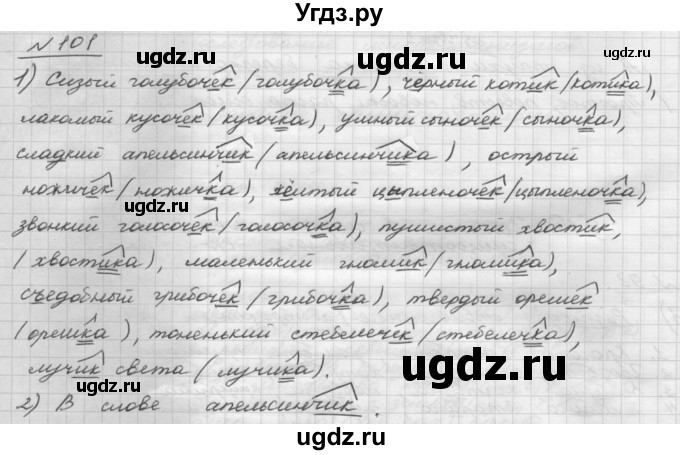 Угдз.ру
№101
1) Сизый голубочек (голубочка), чёрный котик (котика),
лакомый кусочек (кусочка), умный сыночек (сыночка),
сладкий апельсинчик (апельсинчика), острый
ножичек (ножичка), жёлтый цыпленочек (цыпленочка),
звонкий голосочек (голосочка), пушистый хвостик,
(хвостика), маленький гномик (гномика),
съедобный грибочек (грибочка), твердый орешек
(орешка), тоненький стебелечек (стебелечка),
лучик света (лучика).
2) В слове апельсинчик.
ugdz.ru ugdz.ru
ugdz.ru ugdz.ru
ugdz.ru ugdz.ru
ugdz.ru ugdz.ru
ugdz.ru